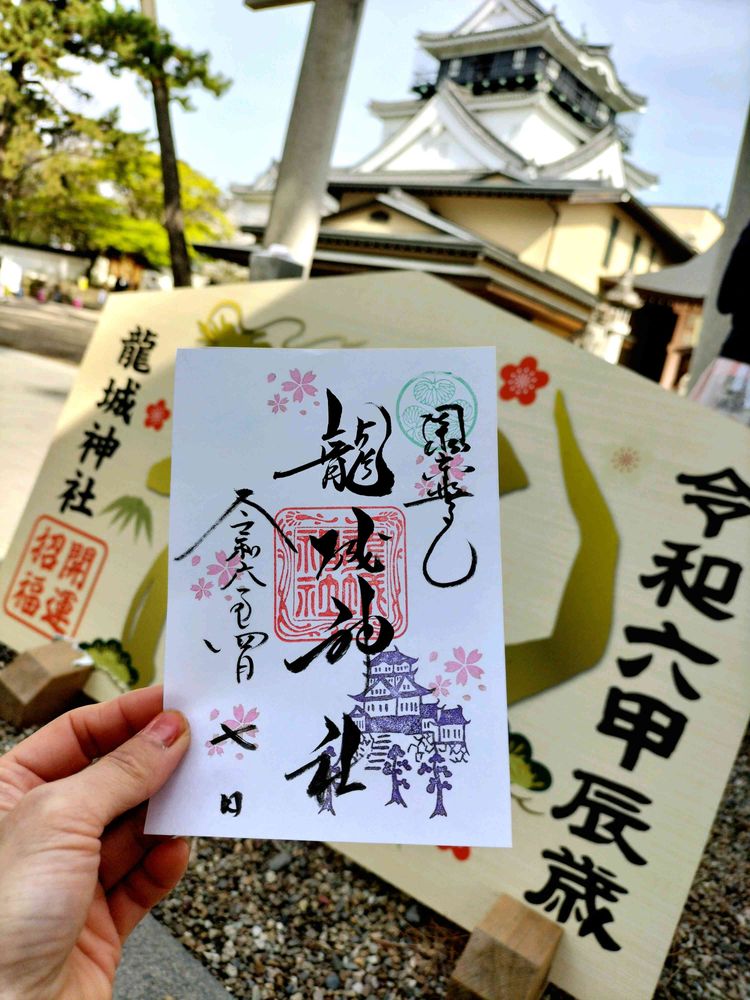 令和六甲辰歳
龍城神社
開運
招福
龍城神社
令和六年四月
七日